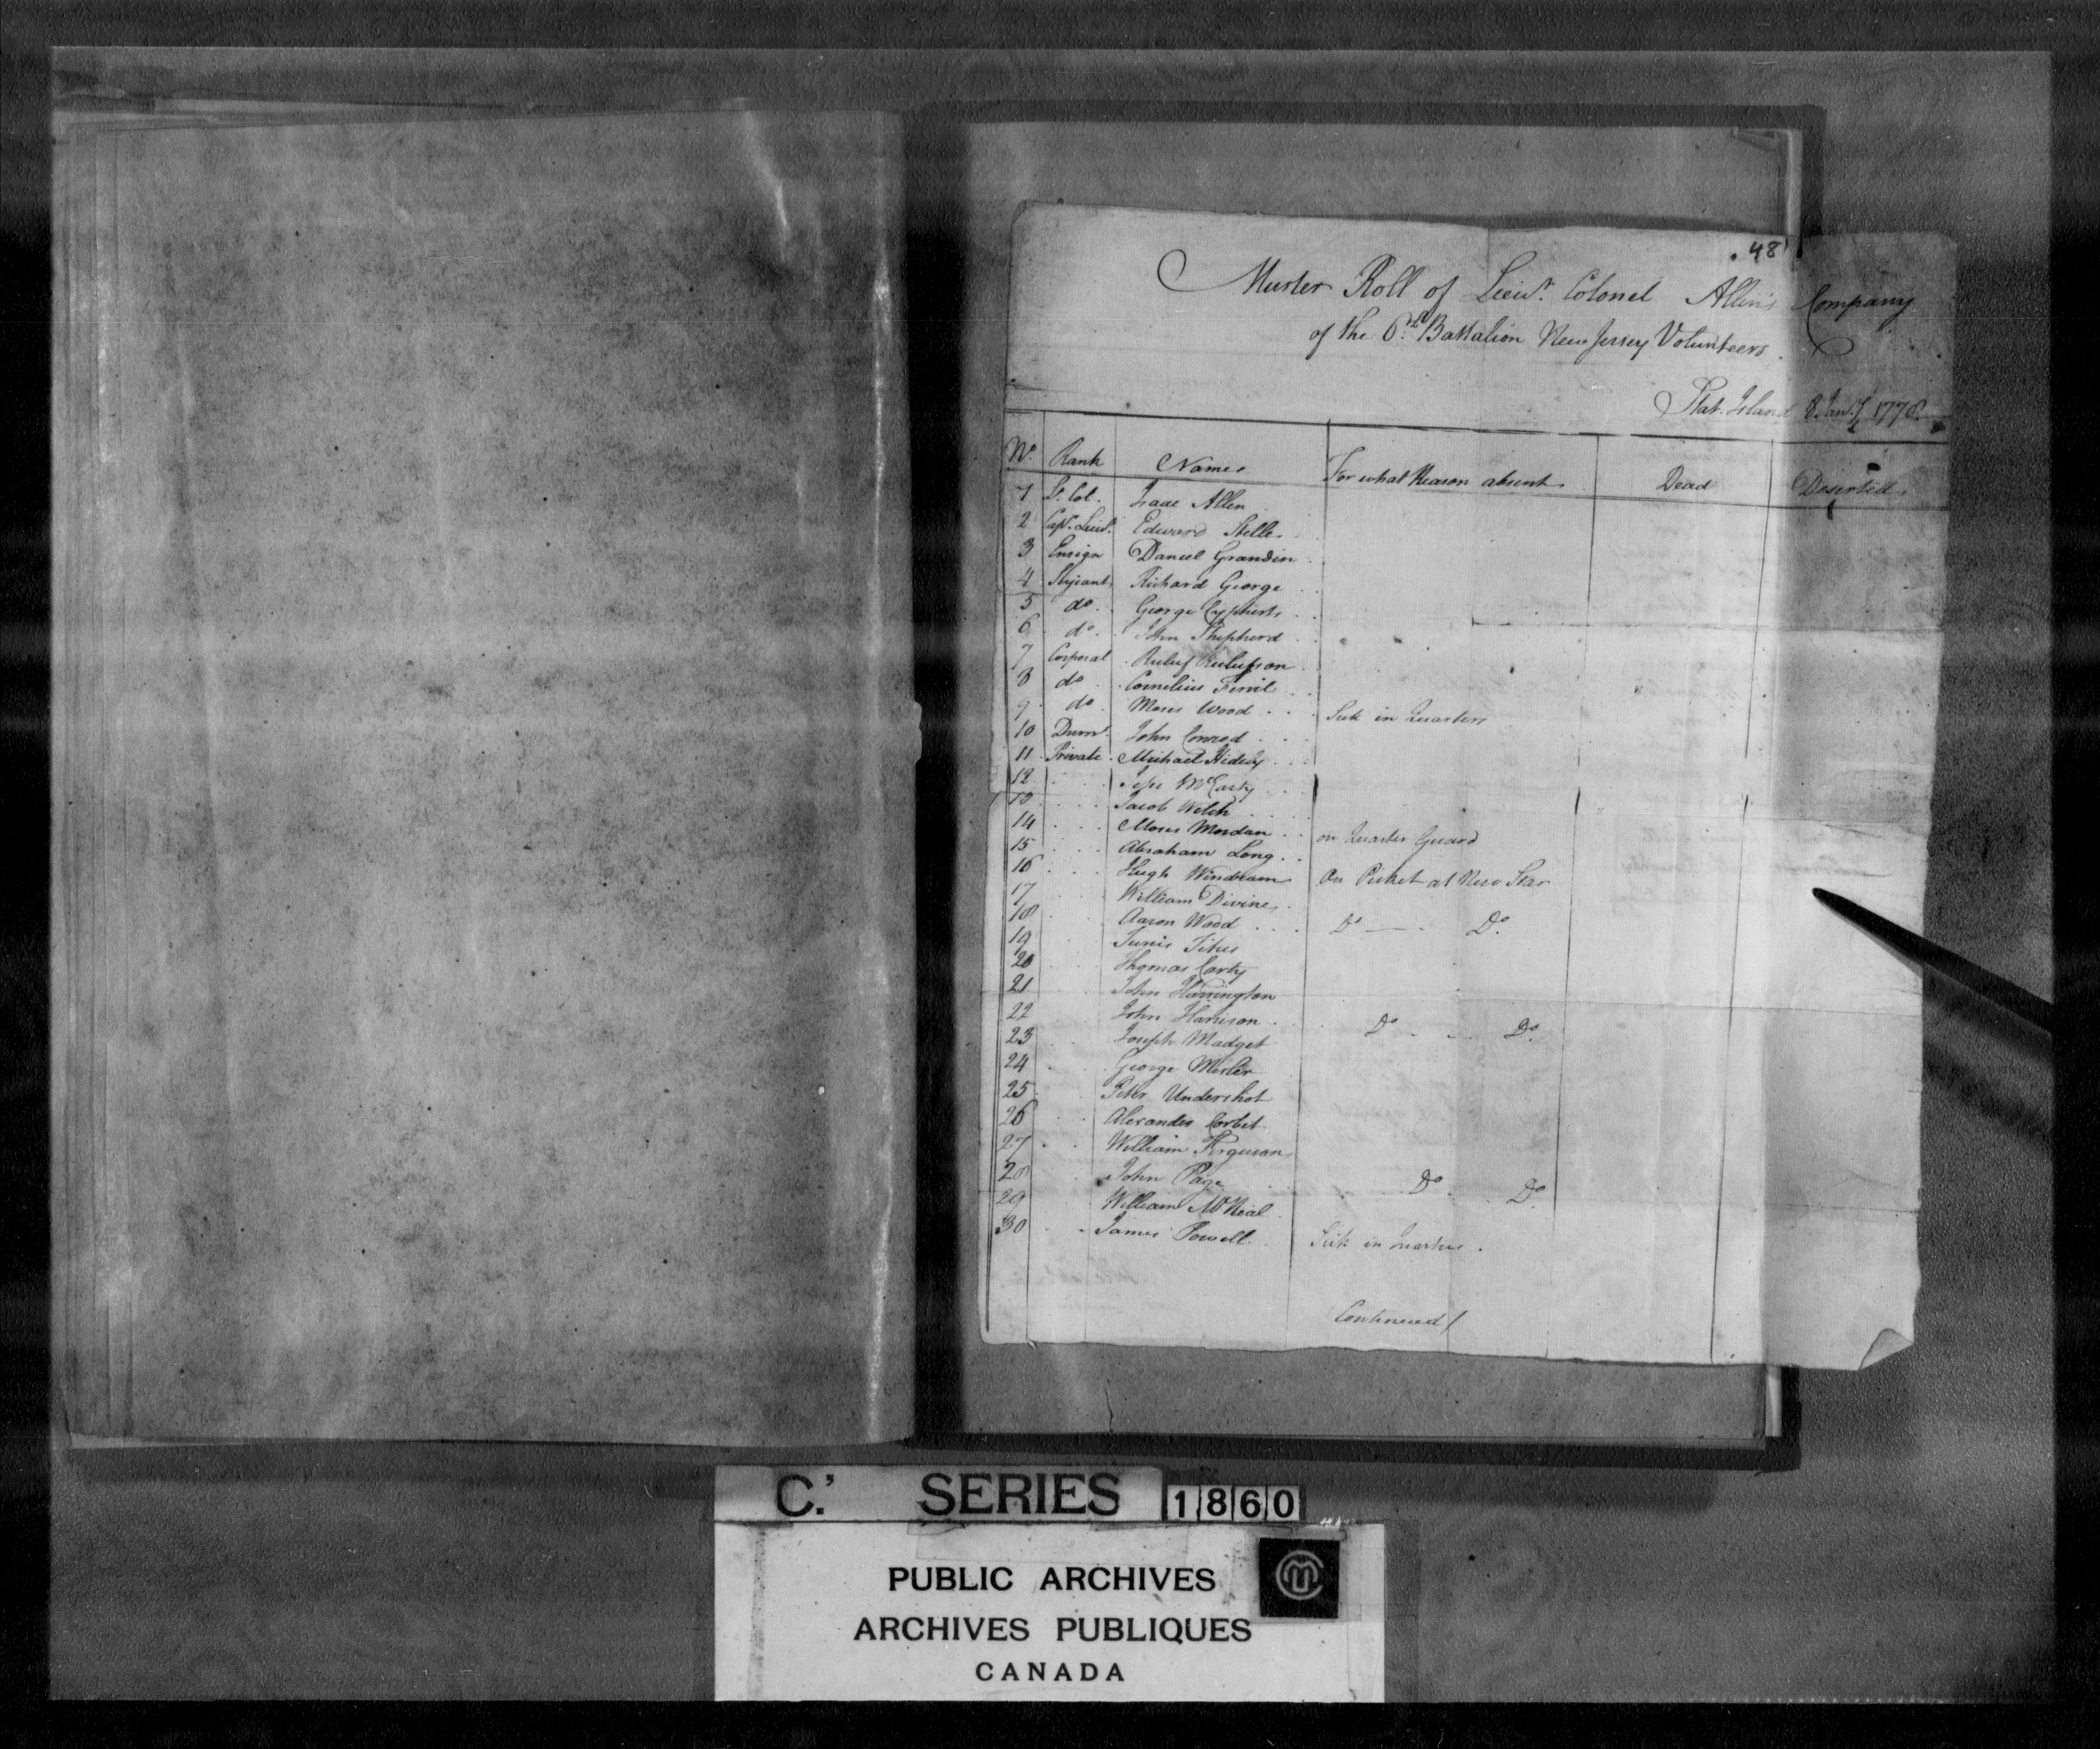 48
Muster Roll of Lieut. Colonel Allen's Company
of the 6th Battalion New Jersey Volunteers.
Stat. Island 8 Jany 1778.
No. Rank Names For what Reason absent Dead Deserted
1 Lt. Col. Isaac Allen
2 Capt. Lieut. Edward Stelle
3 Ensign Daniel Grandin
4 Serjeant Richard George
5 do. George Cypherts
6 do. John Shepherd
7 Corporal Ruluf Rulufson
8 do Cornelius
9 do Moses Wood Sick in Quarters
10 Drumr. John Conrod
11 Private Michael
12 Jesse McCarty
13 Jacob Welch
14 Moses Mordan on Quarter Guard
15 Abraham Long
16 Hugh Windham On Picket at New Star
17 William Divine
18 Aaron Wood Do Do.
19 Tunis Titus
20 Thomas Carty
21 John Harrington
22 John Harrison Do Do.
23 Joseph Madget
24 George Misler
25 Peter Undershot
26 Alexander Corbet
27 William Ferguson
28 John Page Do Do.
29 William McNeal
30 James Powell Sick in Quarters.
Continued/
C.' SERIES 1860
PUBLIC ARCHIVES
ARCHIVES PUBLIQUES
CANADA